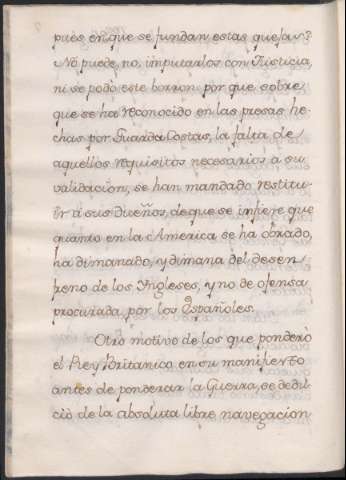 pues en que se fundan estas quejas?
No puede, no, imputarlos con Justicia,
ni se podò este borron: por que sobre
que se ha reconocido en las presas he-
chas por Guarda Costas, la falta de
aquellos requisitos necesarios a su
validacion, se han mandado restitu-
ir á sus dueños, de que se infiere que
quanto en la America se ha obrado,
ha dimanado, y dimana del desen
freno de los Yngleses, y no de ofensa
procurada, por los Españoles.
Otro motivo de los que ponderò
el Rey Britanico en su manifiesto
antes de ponderar la Guerra, se dedu-
ciò de la absoluta libre navegacion